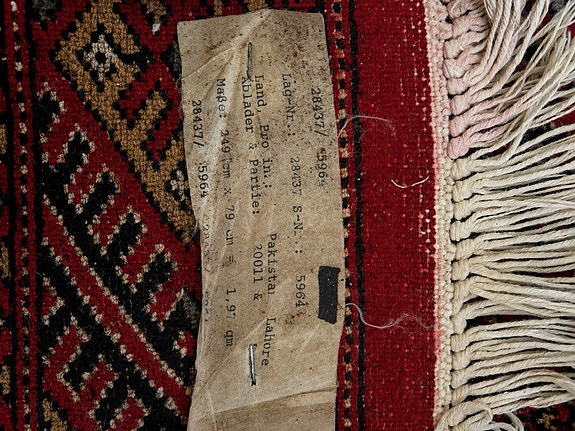 28437/ 5964
Lag-Nr.: 28437 S-N..: 5964
Land, Provin.: Pakistan Lahore
Ablader & Partie: 20011 &
Maße: 249 cm x 79 cm = 1,97 qm
28437/ 5964